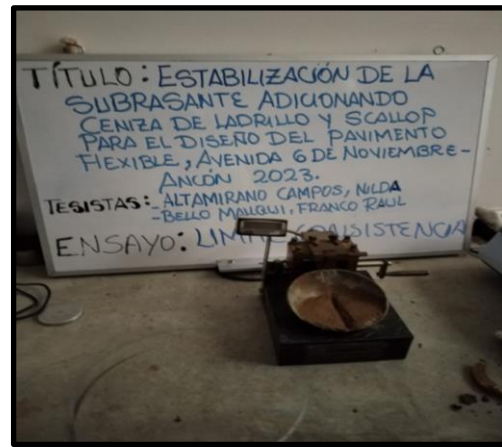 TÍTULO: ESTABILIZACIÓN DE LA
SUBRASANTE ADICIONANDO
CENIZA DE LADRILLO Y SCALLOP
PARA EL DISEÑO DEL PAVIMENTO
FLEXIBLE, AVENIDA 6 DE NOVIEMBRE-
ANCÓN 2023.
TESISTAS:-ALTAMIRANO CAMPOS, NILDA
-BELLO MALLQUI, FRANCO RAUL
ENSAYO: CONSISTENCIA